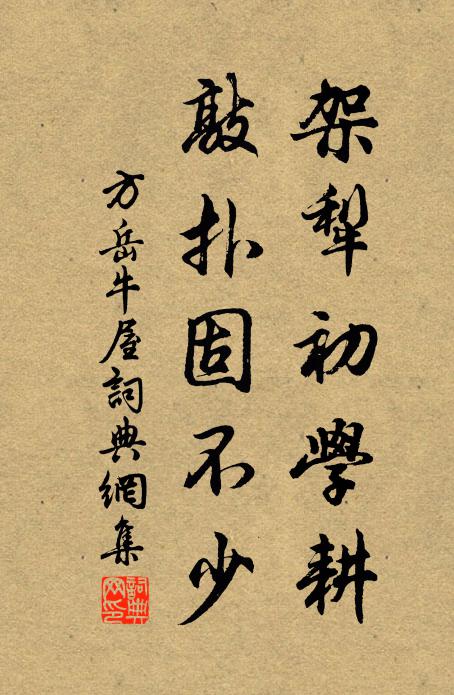 架犁初學耕
敲扑固不少
方岳牛屋詞典網集
詞典网印